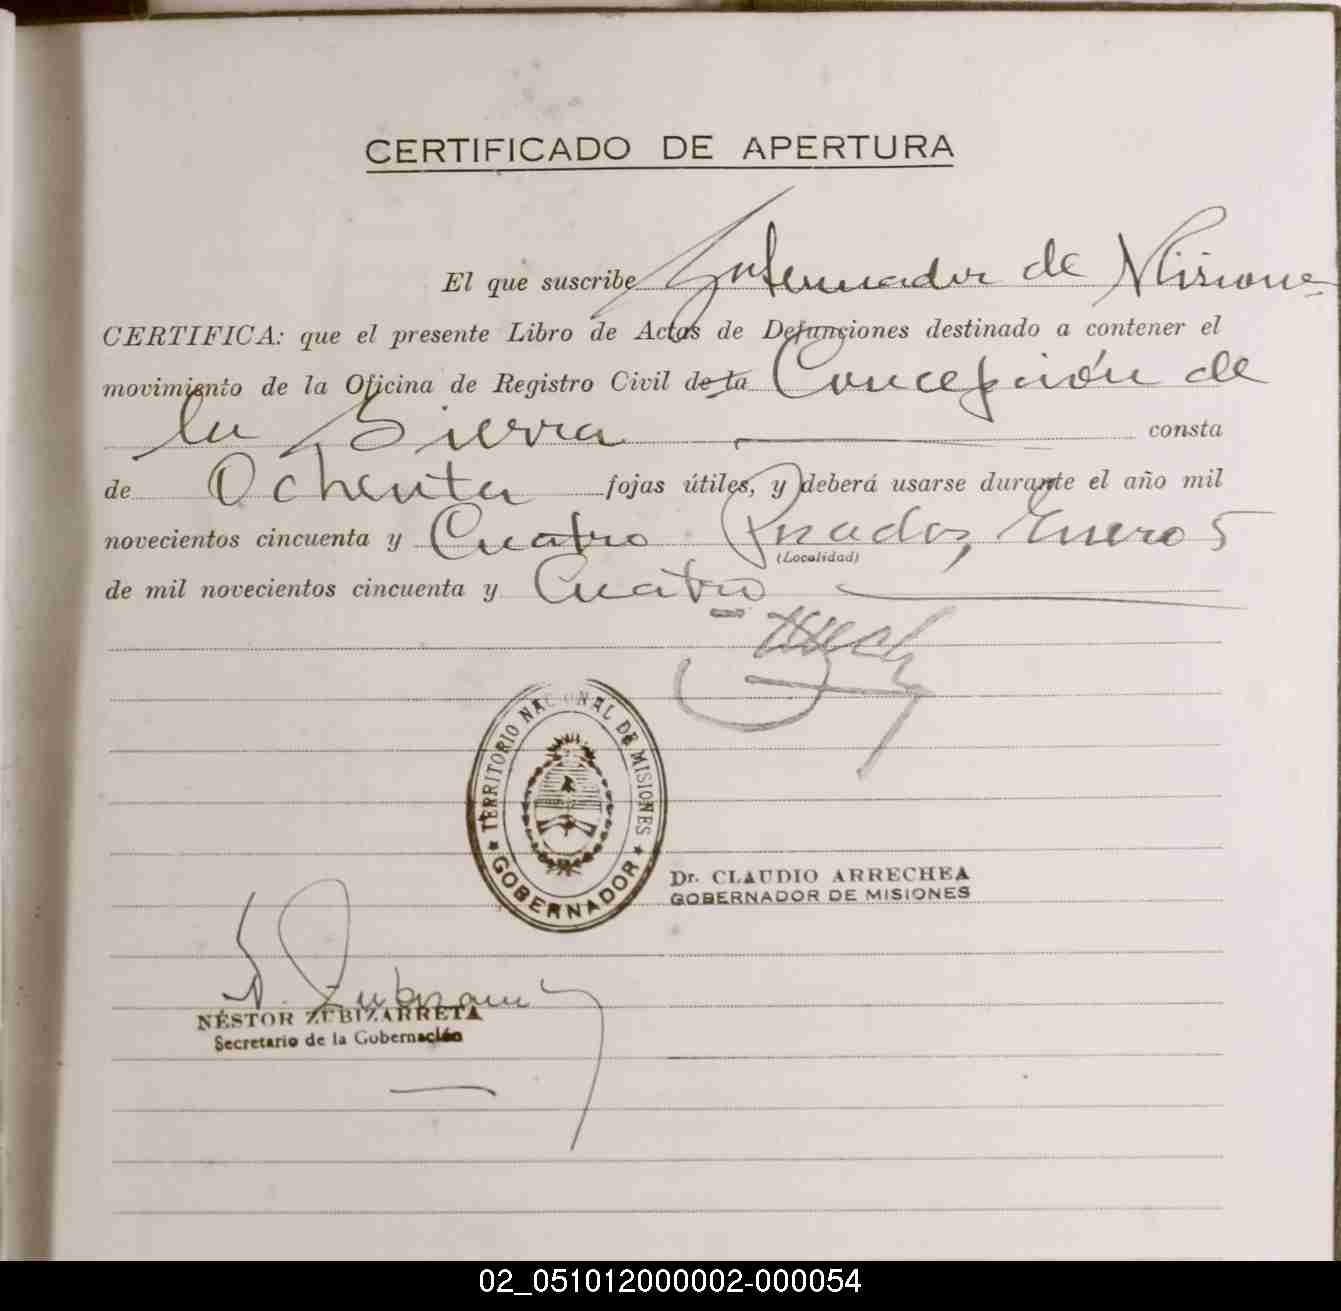 CERTIFICADO DE APERTURA
El que suscribe Gobernador de Misiones
CERTIFICA: que el presente Libro de Actas de Defunciones destinado a contener el
movimiento de la Oficina de Registro Civil de la Concepción de
la Sierra consta
de Ochenta fojas útiles, y deberá usarse durante el año mil
novecientos cincuenta y Cuatro Posadas, Enero 5
(Localidad)
de mil novecientos cincuenta y Cuatro
TERRITORIO NACIONAL DE MISIONES
GOBERNADOR
Dr. CLAUDIO ARRECHEA
GOBERNADOR DE MISIONES
NÉSTOR ZUBIZARRETA
Secretario de la Gobernación
02_051012000002-000054